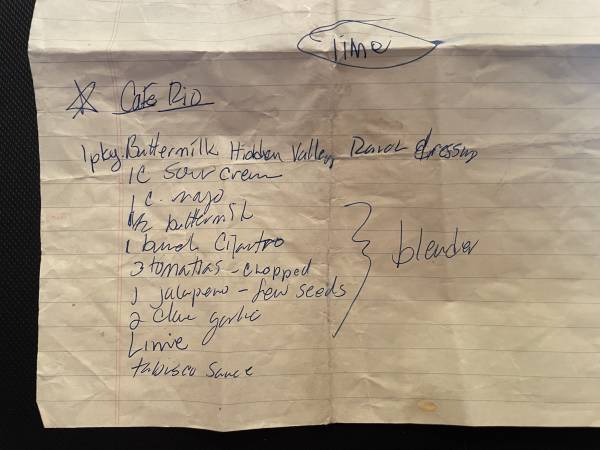 Lime
Cafe Rio
1 pkg. Buttermilk Hidden Valley Ranch dressing
1 C Sour cream
1 c. mayo
1/2 buttermilk
1 bunch Cilantro
blender
2 tomatias - chopped
1 jalapeno - few seeds
2 clove garlic
Lime
tabasco sauce